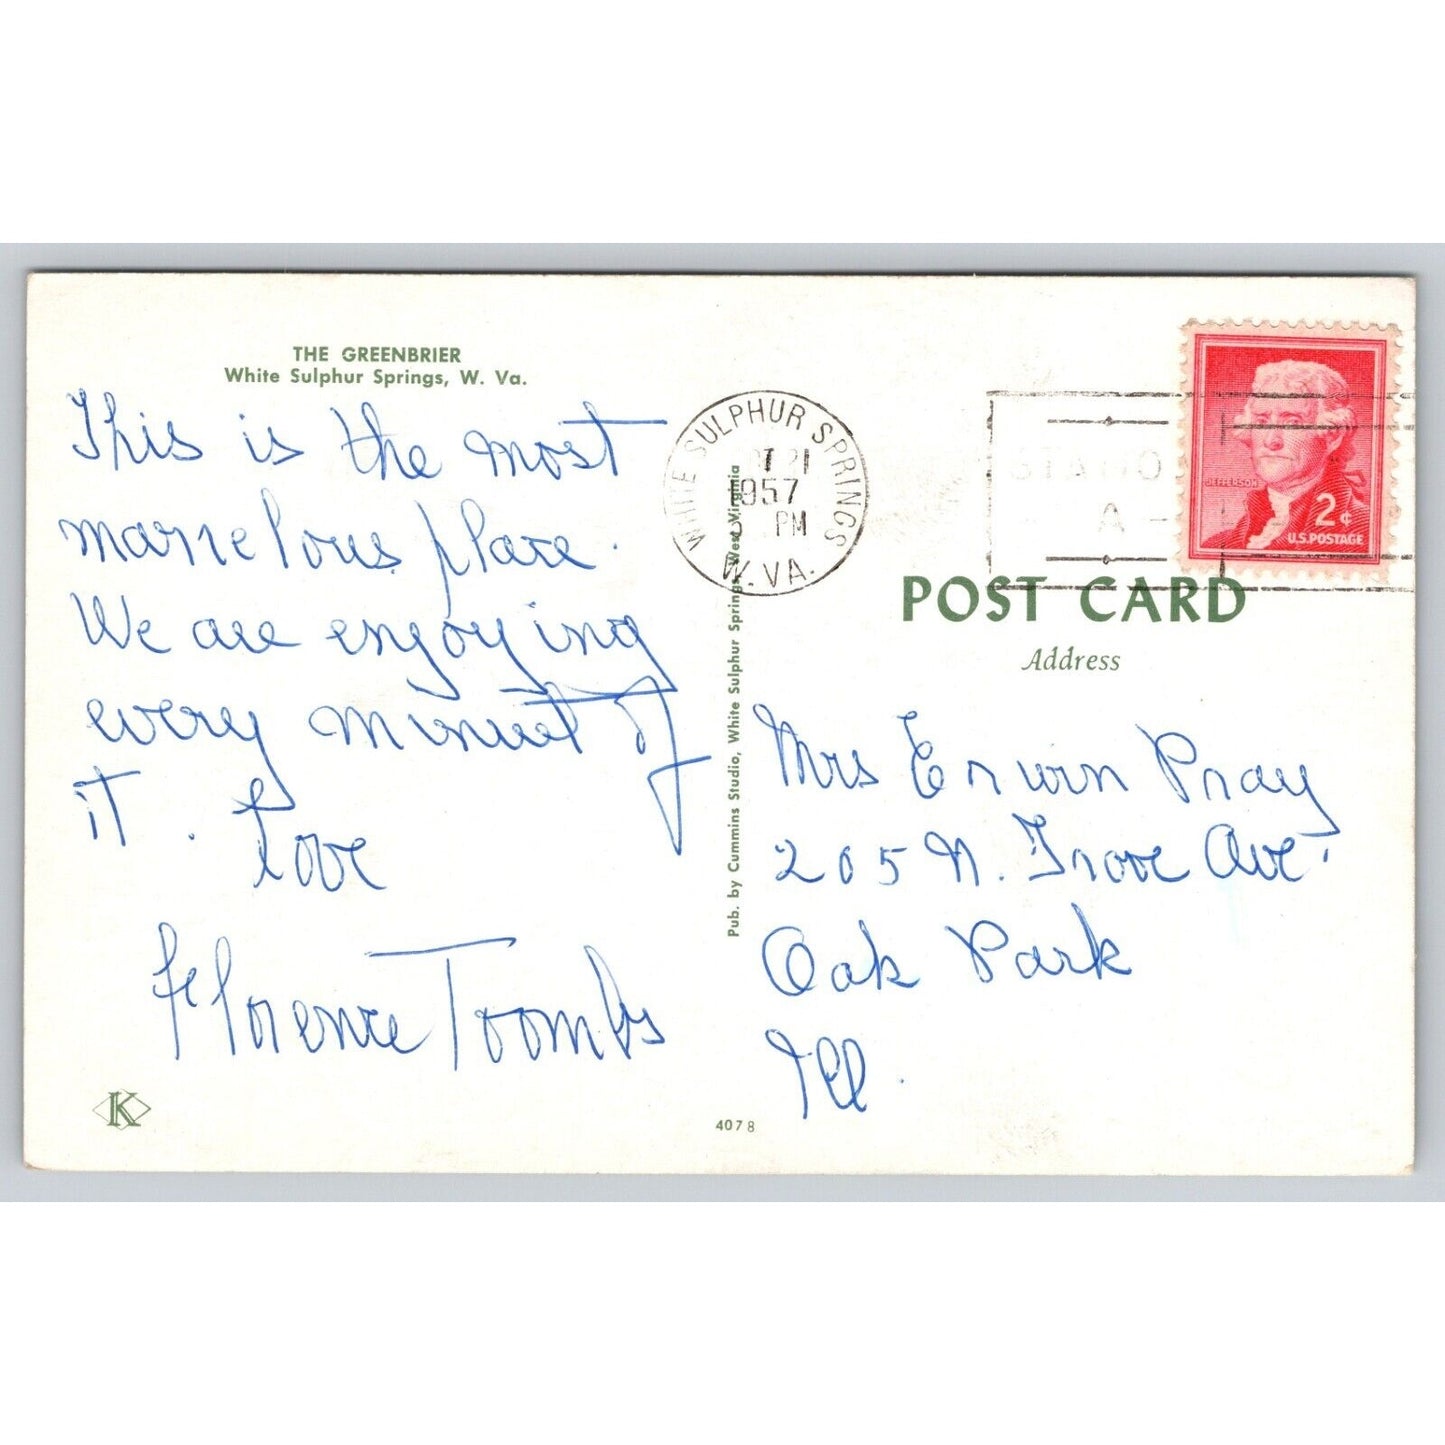 THE GREENBRIER
White Sulphur Springs, W. Va.
This is the most
marvelous place.
We are enjoying
every minuet of
it. Love
Florence Toombs
K
4078
Pub. by Cummins Studio, White Sulphur Springs, West Virginia
WHITE SULPHUR SPRINGS
21
1957
PM
W. VA.
JEFFERSON
2¢
U.S. POSTAGE
POST CARD
Address
Mrs Erwin Pray
205 N. Grove Ave.
Oak Park
Ill.